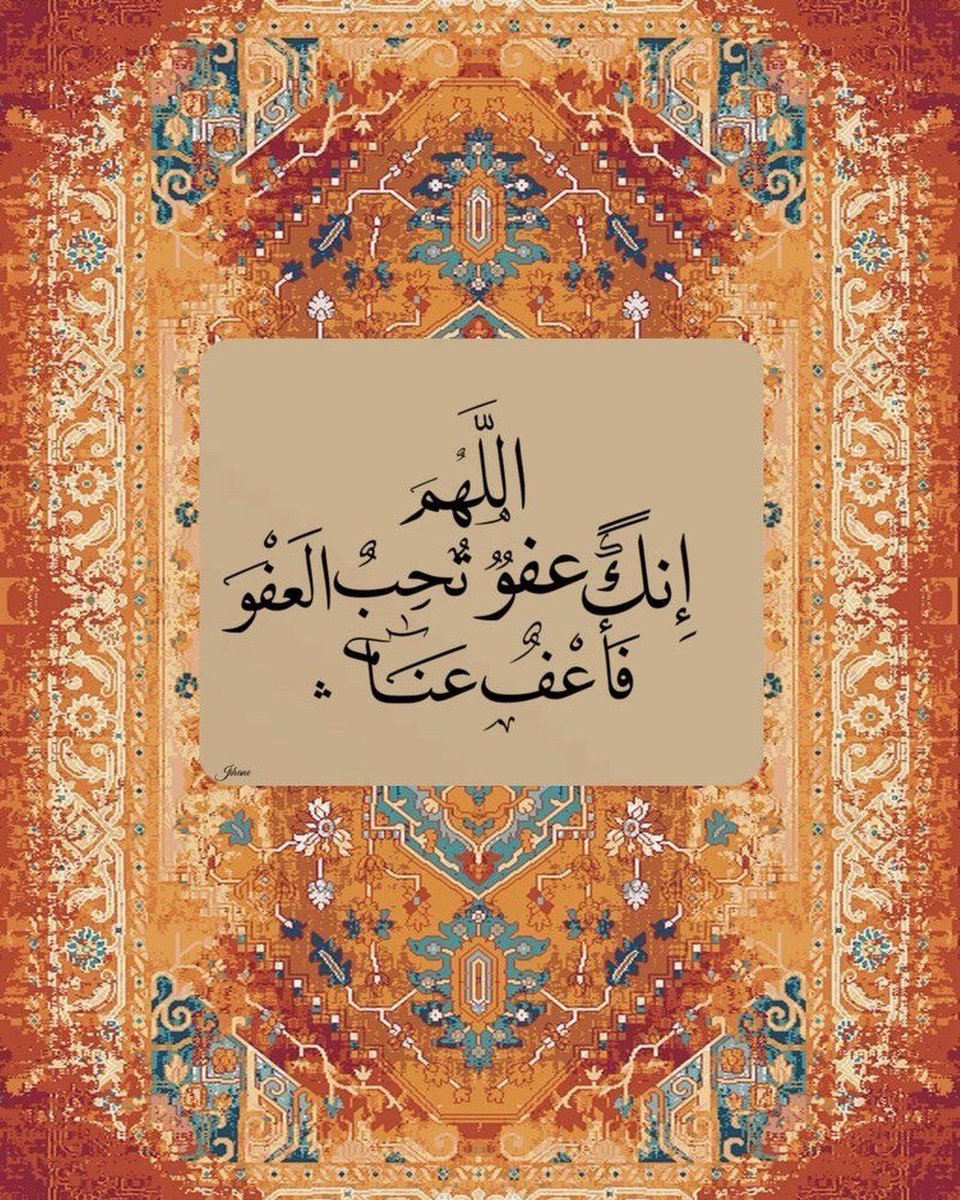 اللَّهُمَ
إِنكَ عفوٌ تُحِبُ العَفْوَ
فَأعْفُ عنَا
Jihane